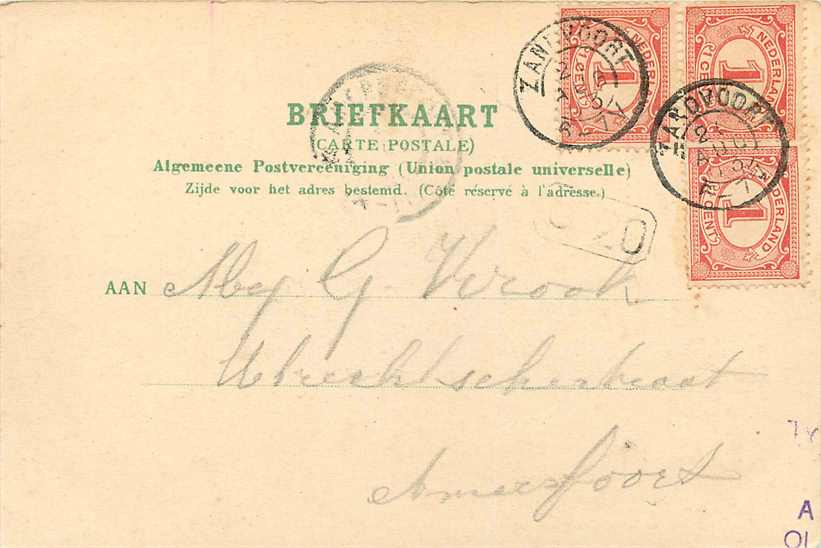 BRIEFKAART
(CARTE POSTALE)
Algemeene Postvereeniging (Union postale universelle)
Zijde voor het adres bestemd. (Côté réservé à l'adresse.)
AAN Mej G. Vrook
Utrechtschestraat
Amersfoort
ZANDVOORT
NEDERLAND
1 CENT
NEDERLAND
1 CENT
ZANDVOORT
NEDERLAND
1 CENT
20
A
01